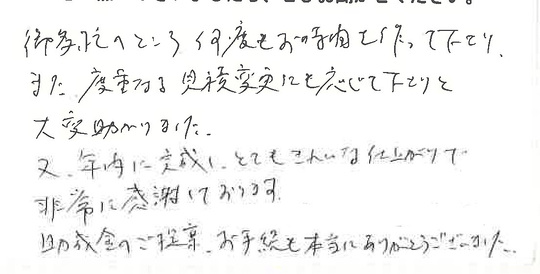 御多忙のところ 何度もお時間を作って下さり、
また、度重なる見積変更にも応じて下さりと
大変助かりました。
又、年内に完成し、とてもきれいな仕上がりで
非常に感謝しております。
助成金のご提案、お手続も本当にありがとうございました。